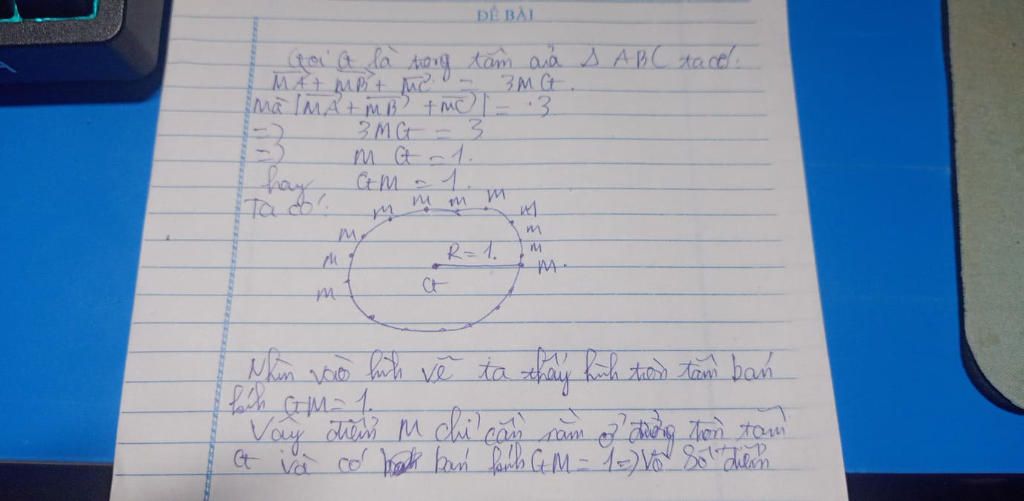 ĐỀ BÀI
Gọi G là trọng tâm của Δ ABC ta có:
MA + MB + MC = 3MG.
Mà |MA + MB + MC| = 3
=> 3MG = 3
=> MG = 1.
hay GM = 1.
Ta có:
M M M M M
M M
M M
M R = 1. M.
M G
Nhìn vào hình vẽ ta thấy hình tròn tâm bán
kính GM = 1.
Vậy điểm M chỉ cần nằm ở đường tròn tâm
G và có bán kính GM = 1 => Vô số điểm